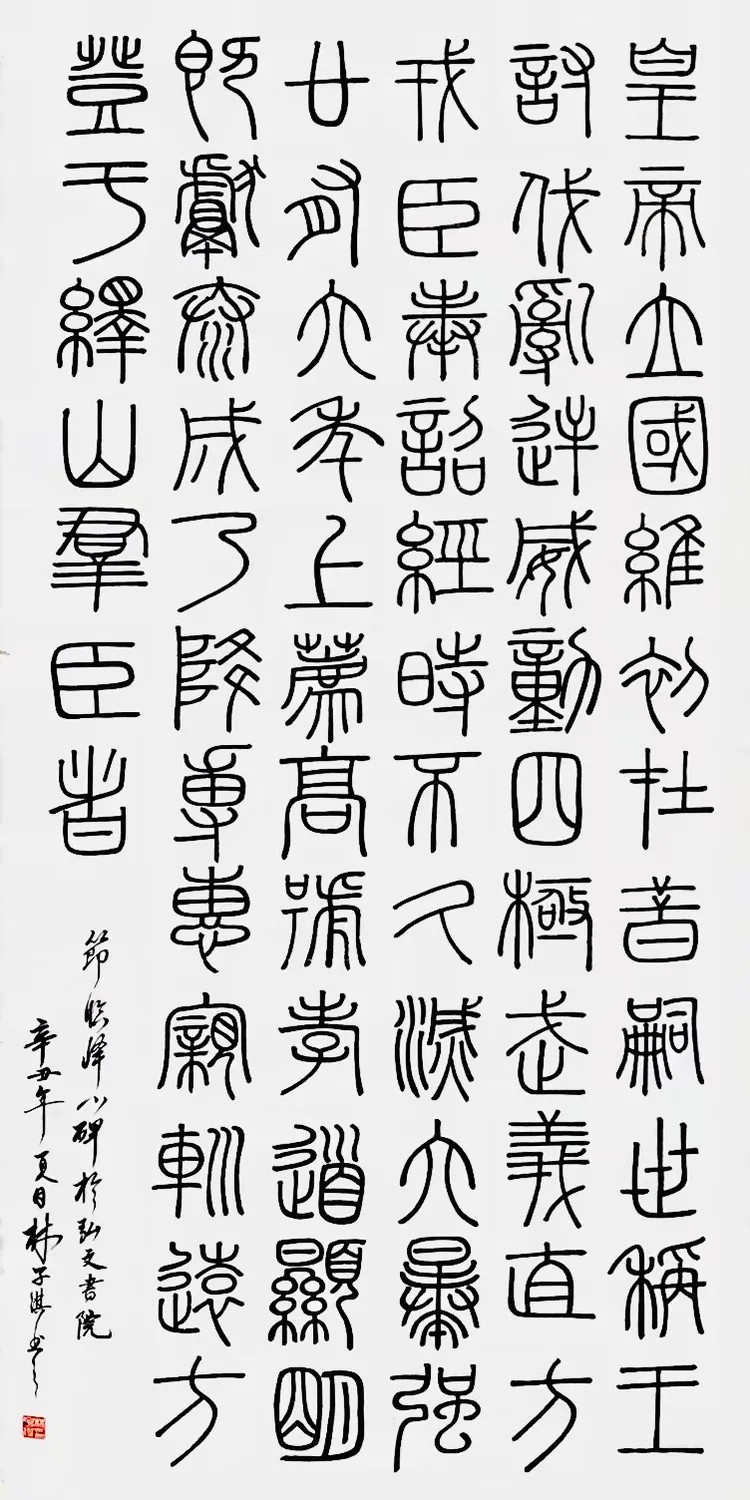 皇帝立國維初在昔嗣世稱王
討伐亂逆威動四極武義直方
戎臣奉詔經時不久滅六暴強
廿有六年上薦高號孝道顯明
既獻泰成乃降專惠寴䡅遠方
登于繹山羣臣者
節臨嶧山碑於弘文書院
辛丑年夏日林子淇書